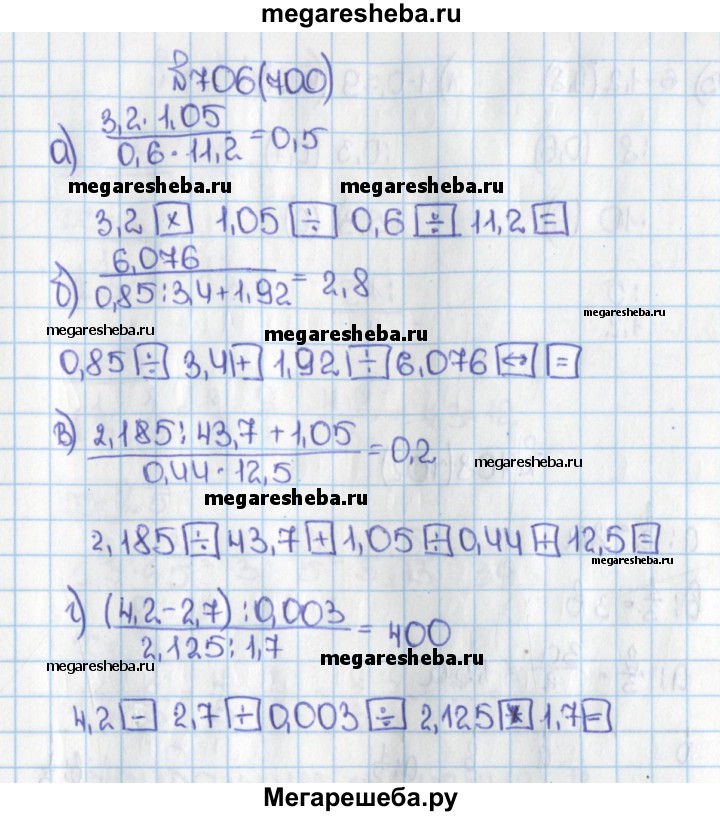 megaresheba.ru
№706(700)
а) 3,2 · 1,05 / 0,6 · 11,2 = 0,5
megaresheba.ru megaresheba.ru
3,2 [×] 1,05 [÷] 0,6 [÷] 11,2 [=]
б) 6,076 / 0,85 : 3,4 + 1,92 = 2,8
megaresheba.ru
megaresheba.ru megaresheba.ru
0,85 [÷] 3,4 [+] 1,92 [÷] 6,076 [↔] [=]
в) 2,185 : 43,7 + 1,05 / 0,44 · 12,5 = 0,2
megaresheba.ru
megaresheba.ru
2,185 [÷] 43,7 [+] 1,05 [÷] 0,44 [÷] 12,5 [=]
megaresheba.ru
г) (4,2 - 2,7) : 0,003 / 2,125 : 1,7 = 400
megaresheba.ru megaresheba.ru
4,2 [-] 2,7 [÷] 0,003 [÷] 2,125 [×] 1,7 [=]
Мегарешеба.ру